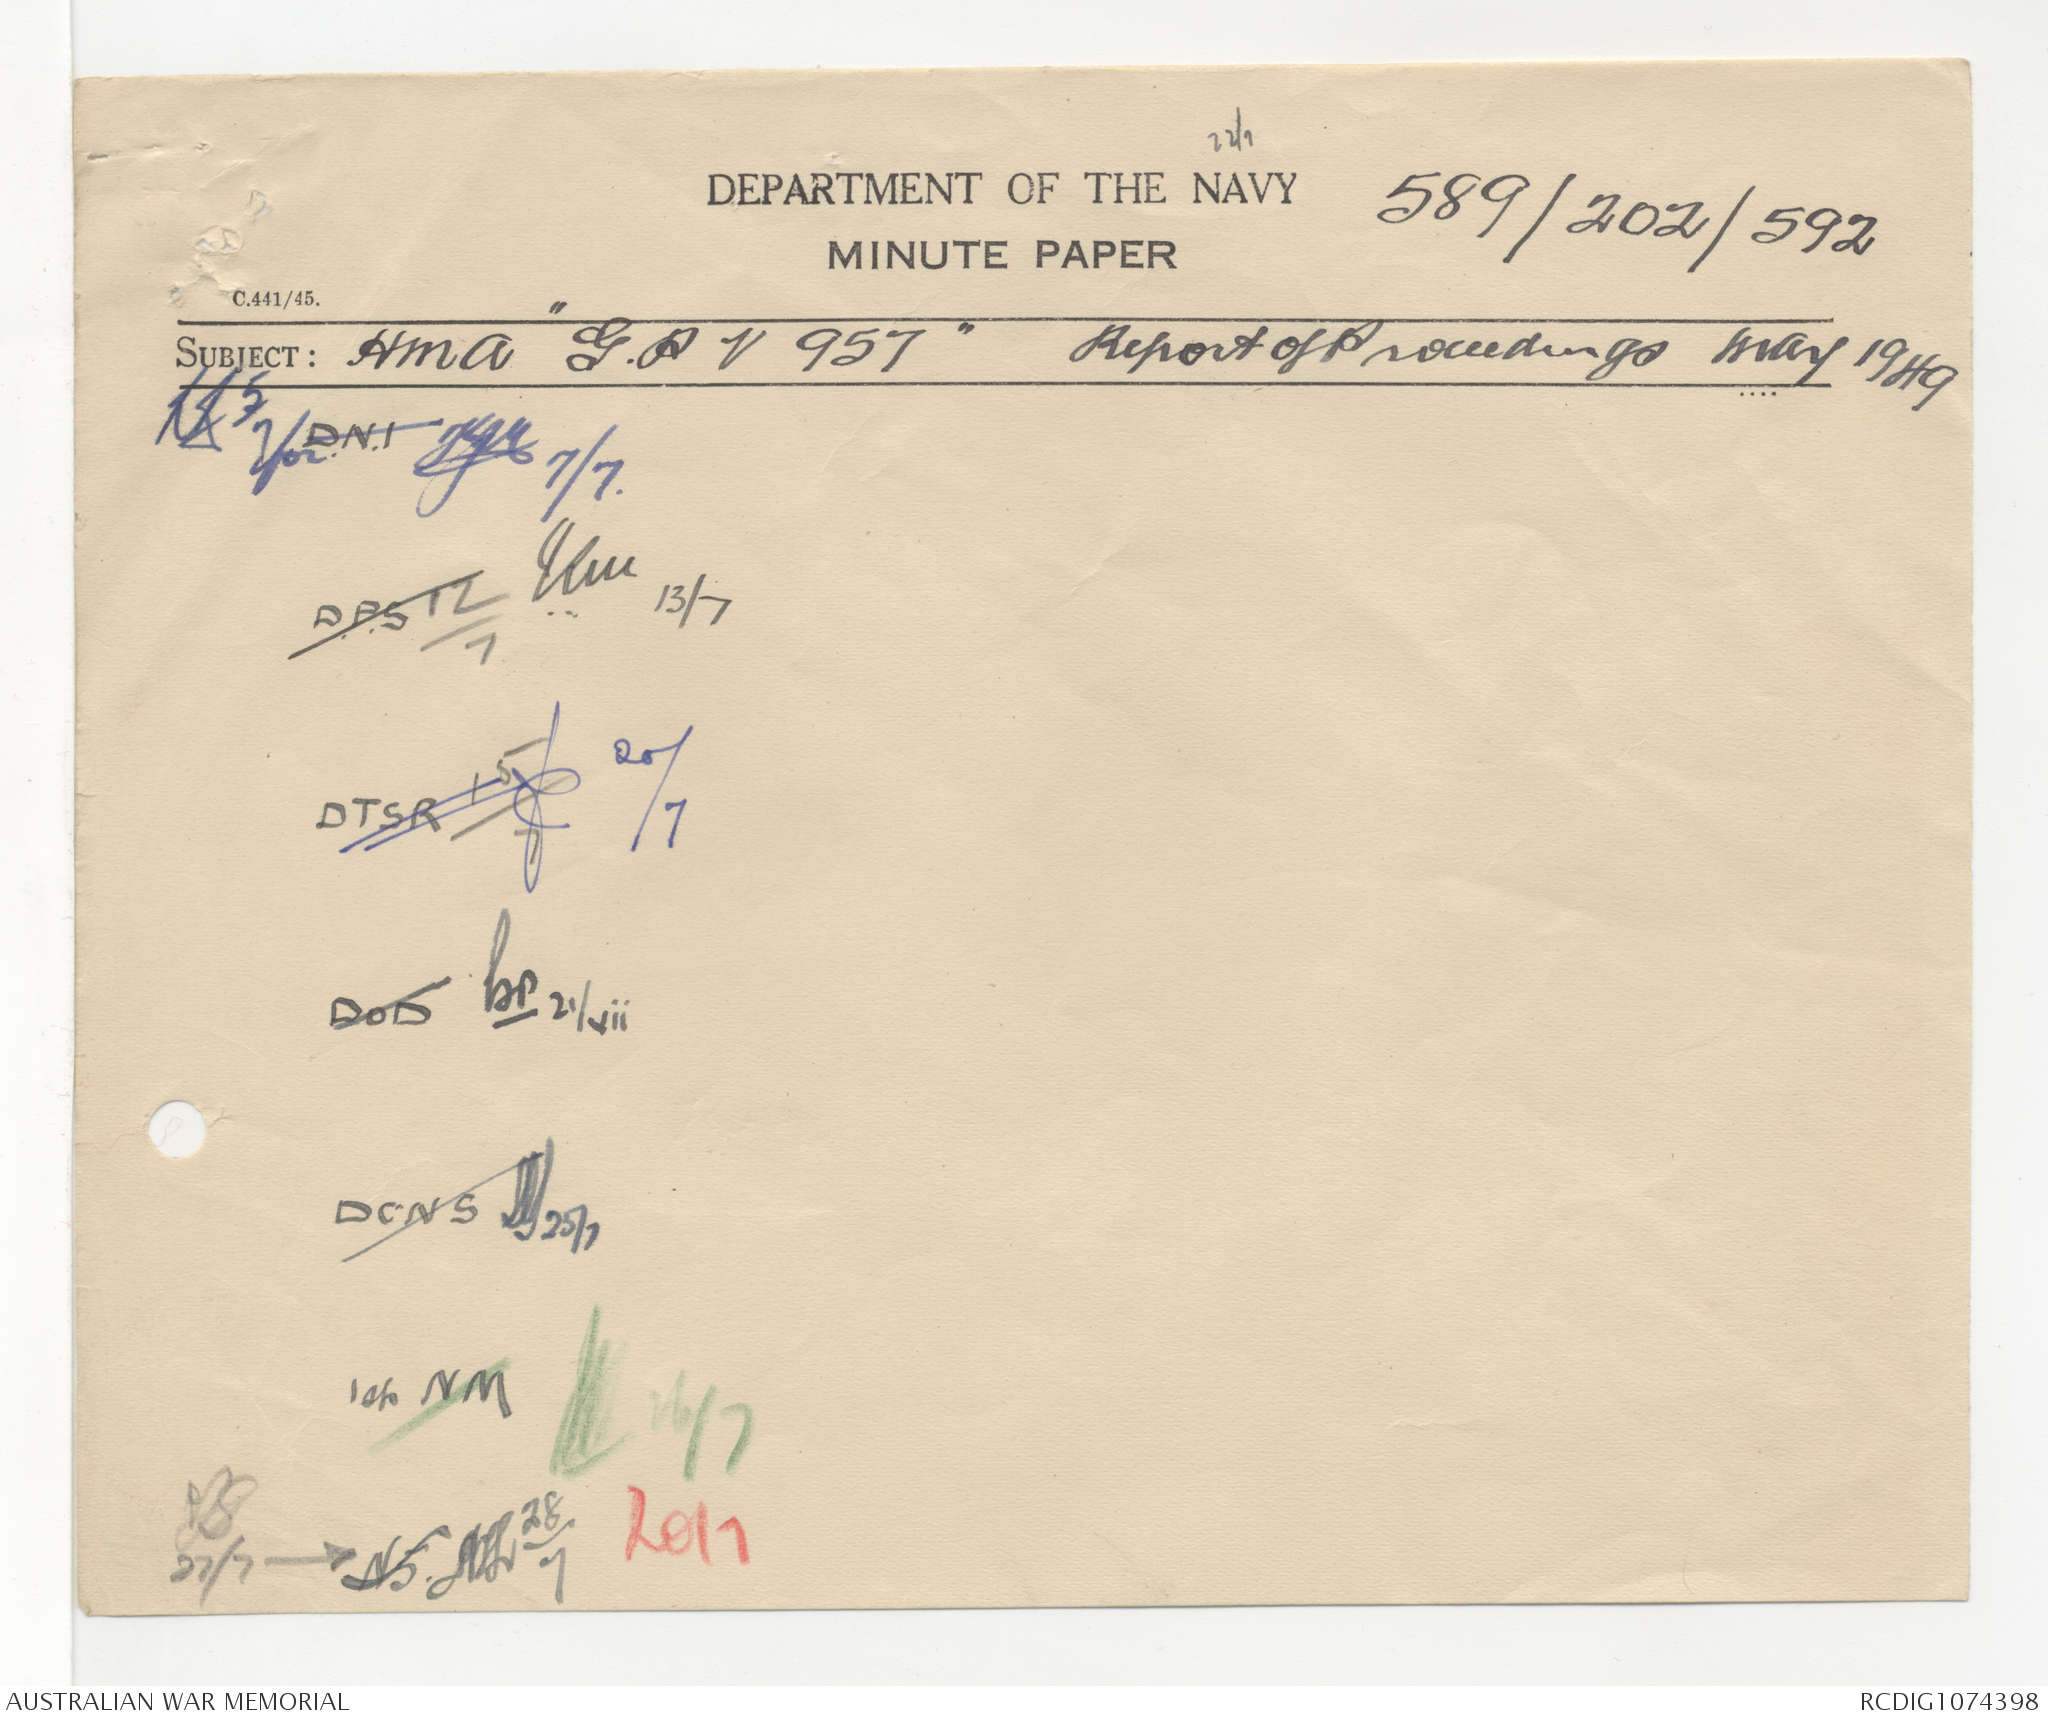 22/7
DEPARTMENT OF THE NAVY
589/202/592
MINUTE PAPER
C.441/45.
SUBJECT: HMA "G.P V 957" Report of Proceedings May 1949
for D.N.I 7/7.
D.P.S 12/7 13/7
DTSR 15/7 20/7
DOD 21/vii
DCNS 25/7
1st NM 26/7
27/7 NS. 28/7 20/7
AUSTRALIAN WAR MEMORIAL
RCDIG1074398